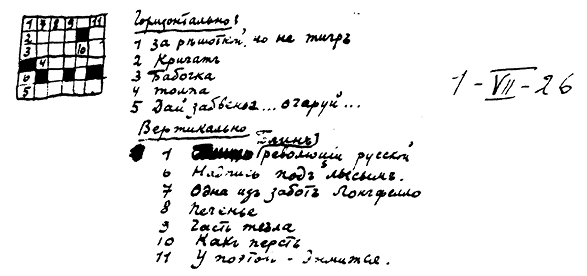 1 7 8 9 11
2
3 10
4
6
5
Горизонтально:
1 за рѣшоткой, но не тигръ
2 Кричать
3 Бабочка
4 толпа
5 Дай забвенье... очаруй...
Вертикально
1 революціи русской
6 Надпись подъ лысымъ.
7 Одна изъ заботъ Лонгфелло
8 Печенье
9 Часть жезла
10 Какъ персть
11 У поэтовъ -
1 - VII - 26